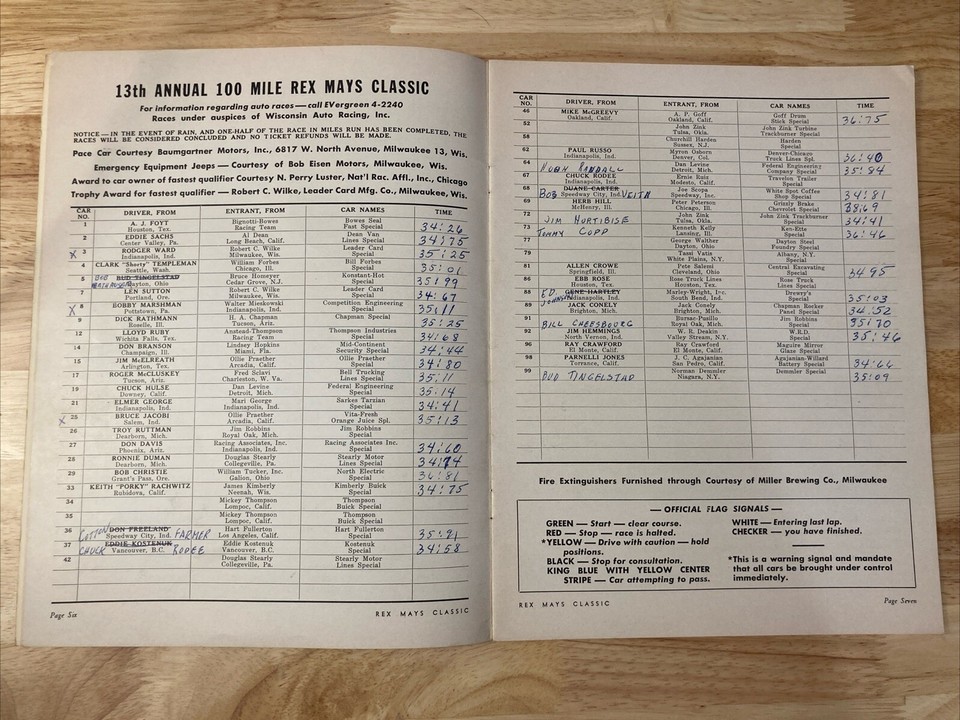 13th ANNUAL 100 MILE REX MAYS CLASSIC
For information regarding auto races — call EVergreen 4-2240
Races under auspices of Wisconsin Auto Racing, Inc.
NOTICE — IN THE EVENT OF RAIN, AND ONE-HALF OF THE RACE IN MILES RUN HAS BEEN COMPLETED, THE
RACES WILL BE CONSIDERED CONCLUDED AND NO TICKET REFUNDS WILL BE MADE.
Pace Car Courtesy Baumgartner Motors, Inc., 6817 W. North Avenue, Milwaukee 13, Wis.
Emergency Equipment Jeeps — Courtesy of Bob Eisen Motors, Milwaukee, Wis.
Award to car owner of fastest qualifier Courtesy N. Perry Luster, Nat'l Rac. Affl., Inc., Chicago
Trophy Award for fastest qualifier — Robert C. Wilke, Leader Card Mfg. Co., Milwaukee, Wis.
CAR NO. DRIVER, FROM ENTRANT, FROM CAR NAMES TIME
1 A. J. FOYT Bignotti-Bowes Bowes Seal 34:26
Houston, Tex. Racing Team Fast Special
2 EDDIE SACHS Al Dean Dean Van 34:75
Center Valley, Pa. Long Beach, Calif. Lines Special
X 3 RODGER WARD Robert C. Wilke Leader Card 35:25
Indianapolis, Ind. Milwaukee, Wis. Special
4 CLARK "Shorty" TEMPLEMAN William Forbes Bill Forbes 35:01
Seattle, Wash. Chicago, Ill. Special
5 BOB BUD TINGELSTAD Bruce Homeyer Konstant-Hot 35:99
Dayton, Ohio Cedar Grove, N.J. Special
7 LEN SUTTON Robert C. Wilke Leader Card 34:67
Portland, Ore. Milwaukee, Wis. Special
X 8 BOBBY MARSHMAN Walter Mieskowski Competition Engineering 35:11
Pottstown, Pa. Indianapolis, Ind. Special
9 DICK RATHMANN H. A. Chapman Chapman Special 35:25
Roselle, Ill. Tucson, Ariz.
12 LLOYD RUBY Anstead-Thompson Thompson Industries 34:68
Wichita Falls, Tex. Racing Team Special
14 DON BRANSON Lindsey Hopkins Mid-Continent 34:44
Champaign, Ill. Miami, Fla. Security Special
15 JIM McELREATH Ollie Praether Ollie Praether 34:80
Arlington, Tex. Arcadia, Calif. Special
17 ROGER McCLUSKEY Fred Sclavi Bell Trucking 35:11
Tucson, Ariz. Charleston, W. Va. Lines Special
19 CHUCK HULSE Dan Levine Federal Engineering 35:14
Downey, Calif. Detroit, Mich. Special
21 ELMER GEORGE Mari George Sarkes Tarzian 34:41
Indianapolis, Ind. Indianapolis, Ind. Special
X 25 BRUCE JACOBI Ollie Praether Vita-Fresh 35:13
Salem, Ind. Arcadia, Calif. Orange Juice Spl.
26 TROY RUTTMAN Jim Robbins Jim Robbins
Dearborn, Mich. Royal Oak, Mich. Special
27 DON DAVIS Racing Associates, Inc. Racing Associates Inc. 34:60
Phoenix, Ariz. Indianapolis, Ind. Special
28 RONNIE DUMAN Douglas Stearly Stearly Motor 34:74
Dearborn, Mich. Collegeville, Pa. Lines Special
29 BOB CHRISTIE William Tucker, Inc. North Electric 36:81
Grant's Pass, Ore. Galion, Ohio Special
33 KEITH "PORKY" RACHWITZ James Kimberly Kimberly Buick 34:75
Rubidova, Calif. Neenah, Wis. Special
34 Mickey Thompson Thompson
Lompoc, Calif. Buick Special
35 Mickey Thompson Thompson
Lompoc, Calif. Buick Special
36 COTTON DON FREELAND FARMER Hart Fullerton Hart Fullerton 35:21
Speedway City, Ind. Los Angeles, Calif. Special
37 CHUCK EDDIE KOSTENUK RODEE Eddie Kostenuk 34:58
Vancouver, B.C. Vancouver, B.C. Special
42 Douglas Stearly Stearly Motor
Collegeville, Pa. Lines Special
Page Six
REX MAYS CLASSIC
CAR NO. DRIVER, FROM ENTRANT, FROM CAR NAMES TIME
46 MIKE McGREEVY A. P. Goff Goff Drum 36:75
Oakland, Calif. Oakland, Calif. Stick Special
52 John Zink John Zink Turbine
Tulsa, Okla. Trackburner Special
58 Churchill Harden Harden
Sussex, N.J. Special
62 PAUL RUSSO Myron Osborn Denver-Chicago 36:40
Indianapolis, Ind. Denver, Col. Truck Lines Spl.
64 HUGH RANDALL Dan Levine Federal Engineering 35:84
Detroit, Mich. Company Special
67 CHUCK RODEE Ernie Ruiz Travelon Trailer
Indianapolis, Ind. Modesto, Calif. Special
68 BOB DUANE CARTER VEITH Joe Scopa White Spot Coffee 34:81
Speedway City, Ind. Speedway, Inc. Shop Special
69 HERB HILL Peter Peterson Grizzly Brake
McHenry, Ill. Chicago, Ill. Chevrolet Special
72 JIM HURTIBISE John Zink John Zink Trackburner 34:41
Tulsa, Okla. Special
73 TOMMY COPP Kenneth Kelly Ken-Ette 36:46
Lansing, Ill. Special
77 George Walther Dayton Steel
Dayton, Ohio Foundry Special
79 Tassi Vatis Albany, N.Y.
White Plains, N.Y. Special
81 ALLEN CROWE Pete Salemi Central Excavating 34 95
Springfield, Ill. Cleveland, Ohio Special
86 EBB ROSE Rose Truck Lines Rose Truck
Houston, Tex. Houston, Tex. Lines Special
88 ED. JOHNSON GENE HARTLEY Marley-Wright, Inc. Drewry's 35:03
Indianapolis, Ind. South Bend, Ind. Special
89 JACK CONELY Jack Conely Chapman Rocker 34:52
Brighton, Mich. Brighton, Mich. Panel Special
91 BILL CHEESBOURG Bursac-Pusillo Jim Robbins 35:70
Royal Oak, Mich. Special
92 JIM HEMMINGS W. R. Deakin W.R.D. 35:46
North Vernon, Ind. Valley Stream, N.Y. Special
96 RAY CRAWFORD Ray Crawford Maguire Mirror
El Monte, Calif. El Monte, Calif. Glaze Special
98 PARNELLI JONES J. C. Agajanian Agajanian-Willard 34:66
Torrance, Calif. San Pedro, Calif. Battery Special
99 BUD TINGELSTAD Norman Demmler Demmler Special 35:09
Niagara, N.Y.
Fire Extinguishers Furnished through Courtesy of Miller Brewing Co., Milwaukee
— OFFICIAL FLAG SIGNALS —
GREEN — Start — clear course.
RED — Stop — race is halted.
*YELLOW — Drive with caution — hold
positions.
BLACK — Stop for consultation.
KING BLUE WITH YELLOW CENTER
STRIPE — Car attempting to pass.
WHITE — Entering last lap.
CHECKER — you have finished.
*This is a warning signal and mandate
that all cars be brought under control
immediately.
REX MAYS CLASSIC
Page Seven